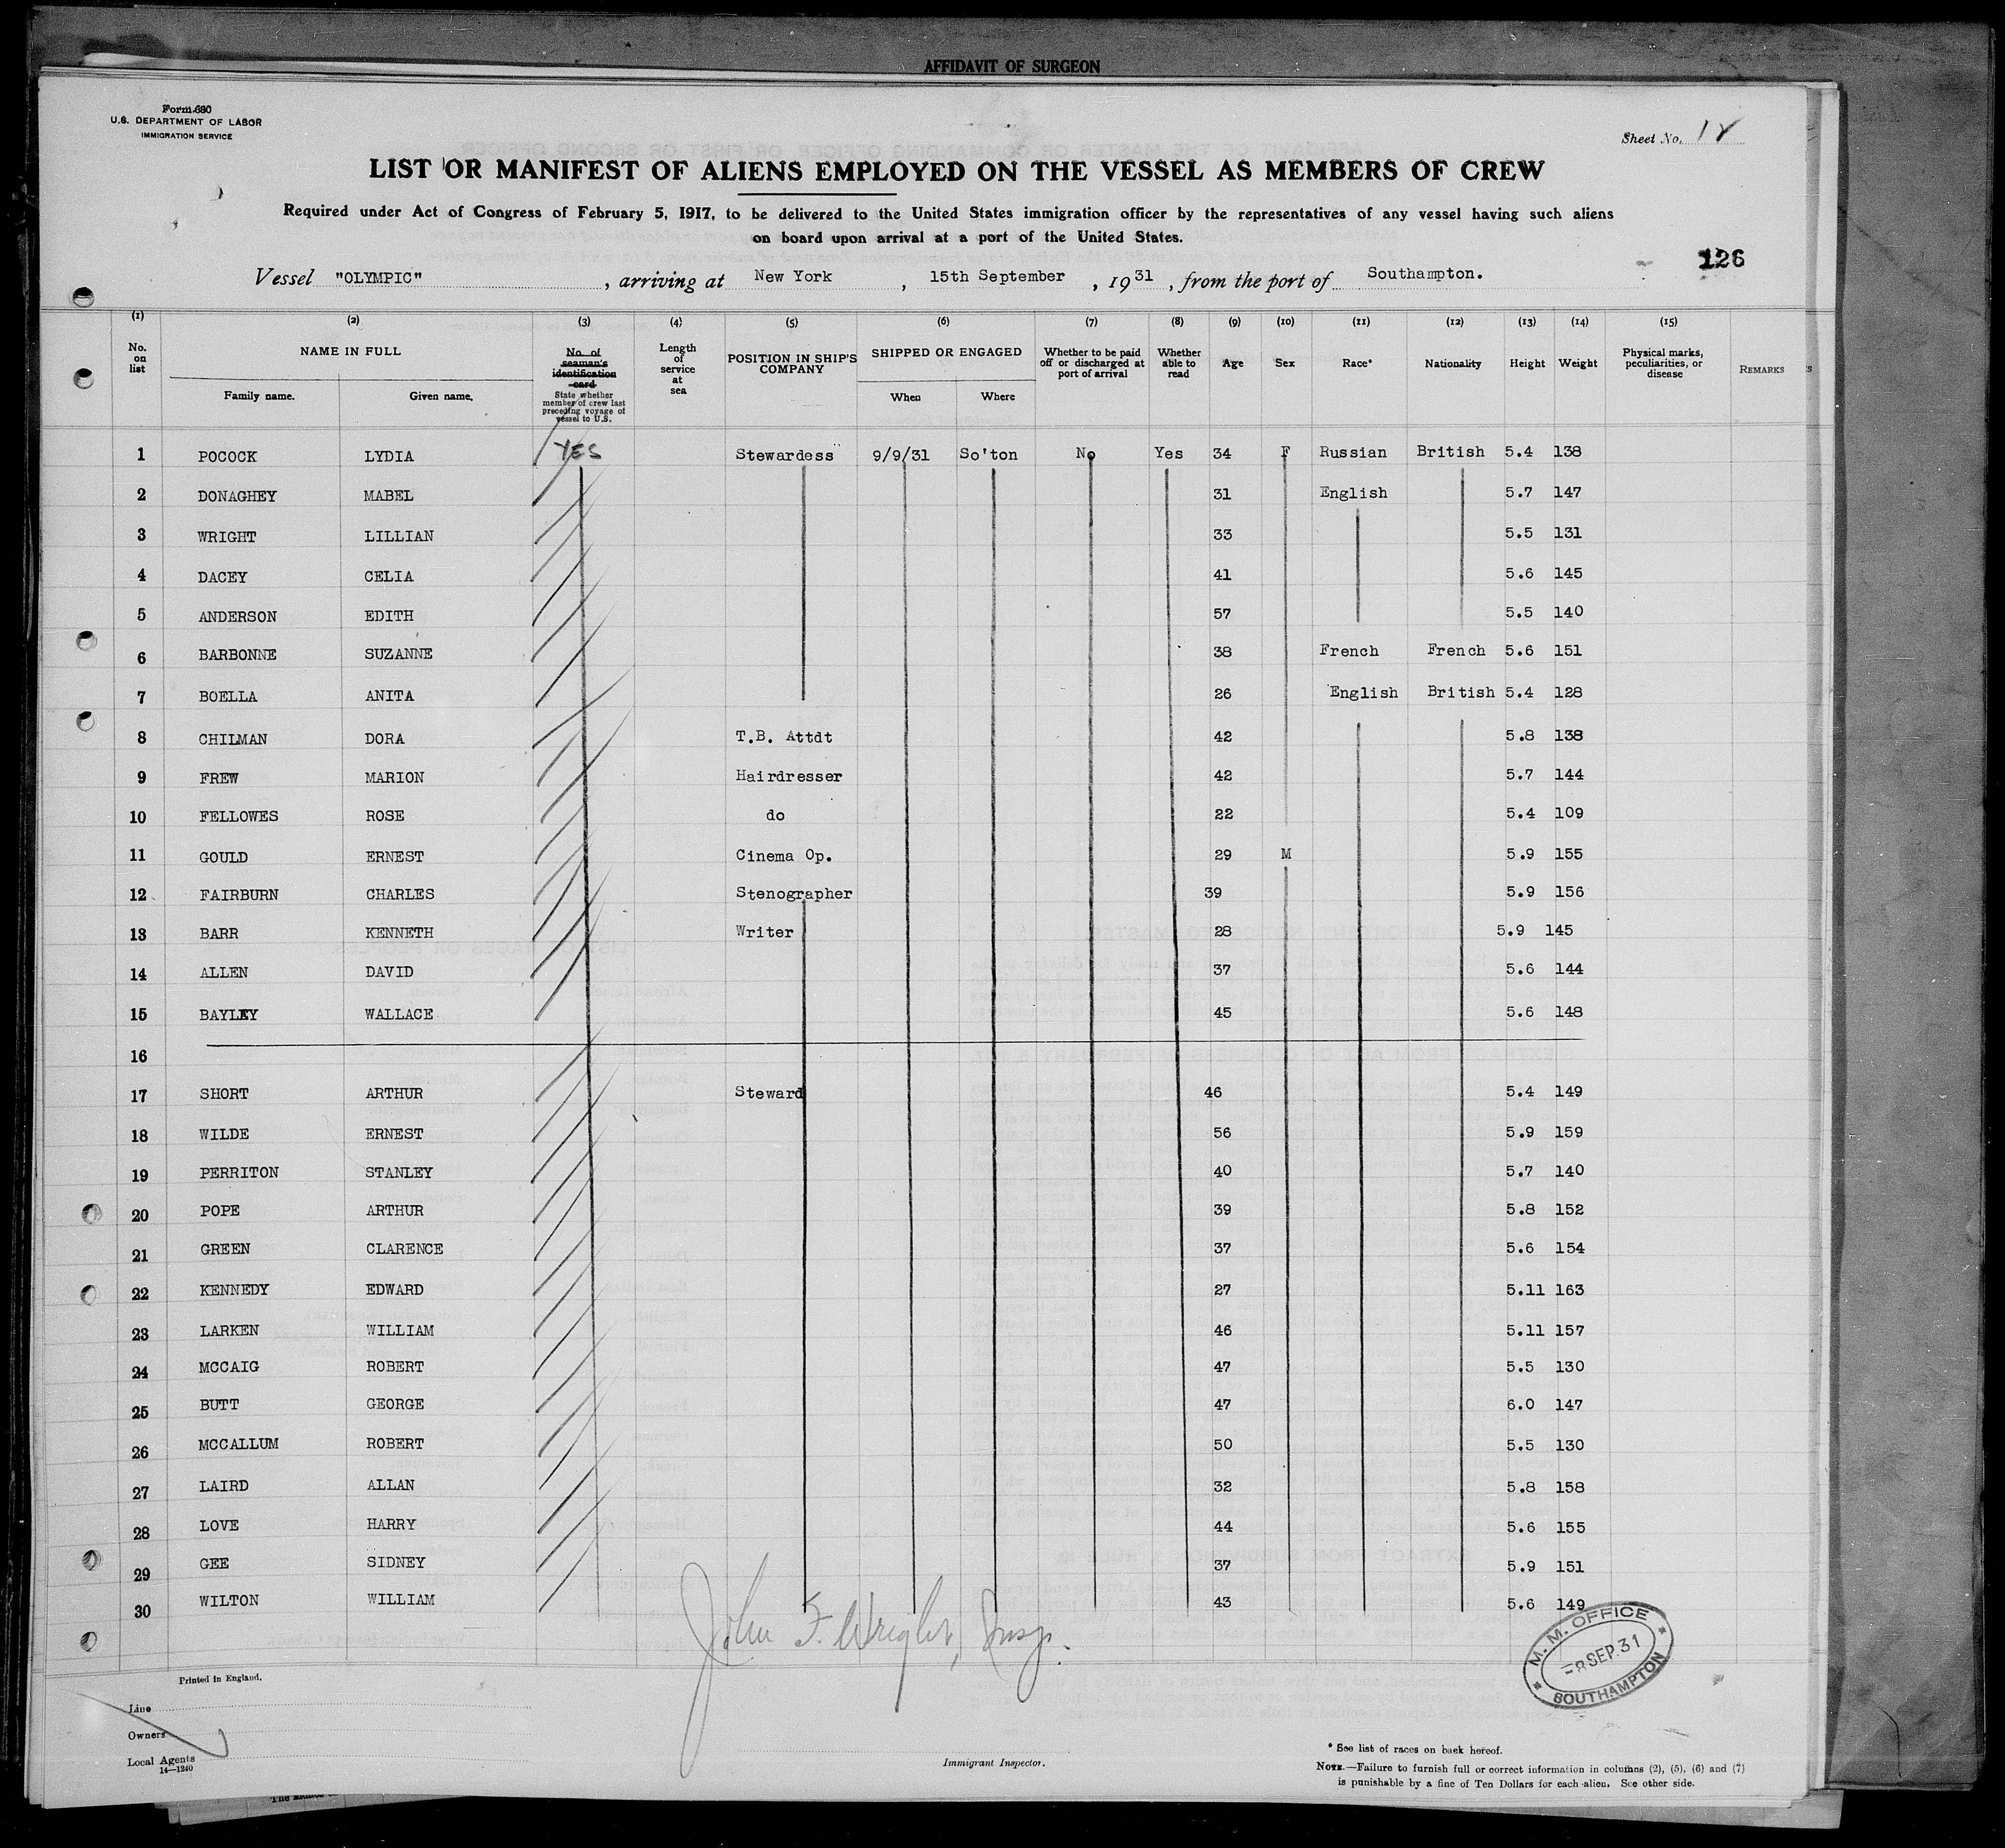 AFFIDAVIT OF SURGEON
Form 680
U.S. DEPARTMENT OF LABOR
IMMIGRATION SERVICE
Sheet No.
LIST OR MANIFEST OF ALIENS EMPLOYED ON THE VESSEL AS MEMBERS OF CREW
Required under Act of Congress of February 5, 1917, to be delivered to the United States immigration officer by the representatives of any vessel having such aliens
on board upon arrival at a port of the United States.
126
Vessel "OLYMPIC", arriving at New York, 15th September, 1931, from the port of Southampton.
(1) (2) (3) (4) (5) (6) (7) (8) (9) (10) (11) (12) (13) (14) (15)
No. on list NAME IN FULL Family name. Given name. No. of seaman's identification card State whether member of crew last preceding voyage of vessel to U.S. Length of service at sea POSITION IN SHIP'S COMPANY SHIPPED OR ENGAGED When Where Whether to be paid off or discharged at port of arrival Whether able to read Age Sex Race* Nationality Height Weight Physical marks, peculiarities, or disease REMARKS
1 POCOCK LYDIA YES Stewardess 9/9/31 So'ton No Yes 34 F Russian British 5.4 138
2 DONAGHEY MABEL 31 English 5.7 147
3 WRIGHT LILLIAN 33 5.5 131
4 DACEY CELIA 41 5.6 145
5 ANDERSON EDITH 57 5.5 140
6 BARBONNE SUZANNE 38 French French 5.6 151
7 BOELLA ANITA 26 English British 5.4 128
8 CHILMAN DORA T.B. Attdt 42 5.8 138
9 FREW MARION Hairdresser 42 5.7 144
10 FELLOWES ROSE do 22 5.4 109
11 GOULD ERNEST Cinema Op. 29 M 5.9 155
12 FAIRBURN CHARLES Stenographer 39 5.9 156
13 BARR KENNETH Writer 28 5.9 145
14 ALLEN DAVID 37 5.6 144
15 BAYLEY WALLACE 45 5.6 148
16
17 SHORT ARTHUR Steward 46 5.4 149
18 WILDE ERNEST 56 5.9 159
19 PERRITON STANLEY 40 5.7 140
20 POPE ARTHUR 39 5.8 152
21 GREEN CLARENCE 37 5.6 154
22 KENNEDY EDWARD 27 5.11 163
23 LARKEN WILLIAM 46 5.11 157
24 MCCAIG ROBERT 47 5.5 130
25 BUTT GEORGE 47 6.0 147
26 MCCALLUM ROBERT 50 5.5 130
27 LAIRD ALLAN 32 5.8 158
28 LOVE HARRY 44 5.6 155
29 GEE SIDNEY 37 5.9 151
30 WILTON WILLIAM 43 5.6 149
John F. Wright, Insp.
M. M. OFFICE
-8 SEP.31
SOUTHAMPTON
Printed in England.
Line
Owners
Local Agents
14—1240
Immigrant Inspector.
* See list of races on back hereof.
NOTE.—Failure to furnish full or correct information in columns (2), (5), (6) and (7)
is punishable by a fine of Ten Dollars for each alien. See other side.